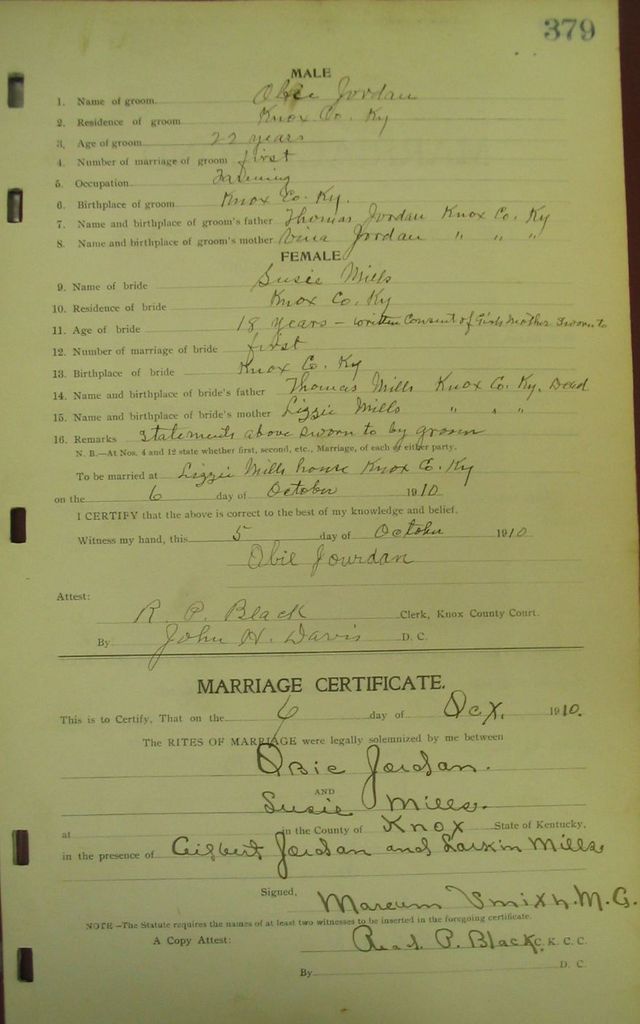 379
MALE
1. Name of groom Obie Jordan
2. Residence of groom Knox Co. Ky
3. Age of groom 22 years
4. Number of marriage of groom first
5. Occupation Farming
6. Birthplace of groom Knox Co. Ky.
7. Name and birthplace of groom's father Thomas Jordan Knox Co. Ky
8. Name and birthplace of groom's mother Vina Jordan " " "
FEMALE
9. Name of bride Susie Mills
10. Residence of bride Knox Co. Ky
11. Age of bride 18 years – written Consent of Girls Mother Sworn to
12. Number of marriage of bride first
13. Birthplace of bride Knox Co. Ky
14. Name and birthplace of bride's father Thomas Mills Knox Co. Ky. Dead
15. Name and birthplace of bride's mother Lizzie Mills " " "
16. Remarks Statements above sworn to by groom
N. B.—At Nos. 4 and 12 state whether first, second, etc., Marriage, of each or either party.
To be married at Lizzie Mills house Knox Co. Ky
on the 6 day of October 1910
I CERTIFY that the above is correct to the best of my knowledge and belief.
Witness my hand, this 5 day of October 1910
Obie Jourdan
Attest:
R. P. Black Clerk, Knox County Court.
By John H. Davis D. C.
MARRIAGE CERTIFICATE.
This is to Certify, That on the 6 day of Oct. 1910.
The RITES OF MARRIAGE were legally solemnized by me between
Obie Jordan.
AND
Susie Mills.
at in the County of Knox State of Kentucky,
in the presence of Gilbert Jordan and Larkin Mills
Signed, Marcum Smith. M. G.
NOTE—The Statute requires the names of at least two witnesses to be inserted in the foregoing certificate.
A Copy Attest: Read P. Black C. K. C. C.
By D. C.